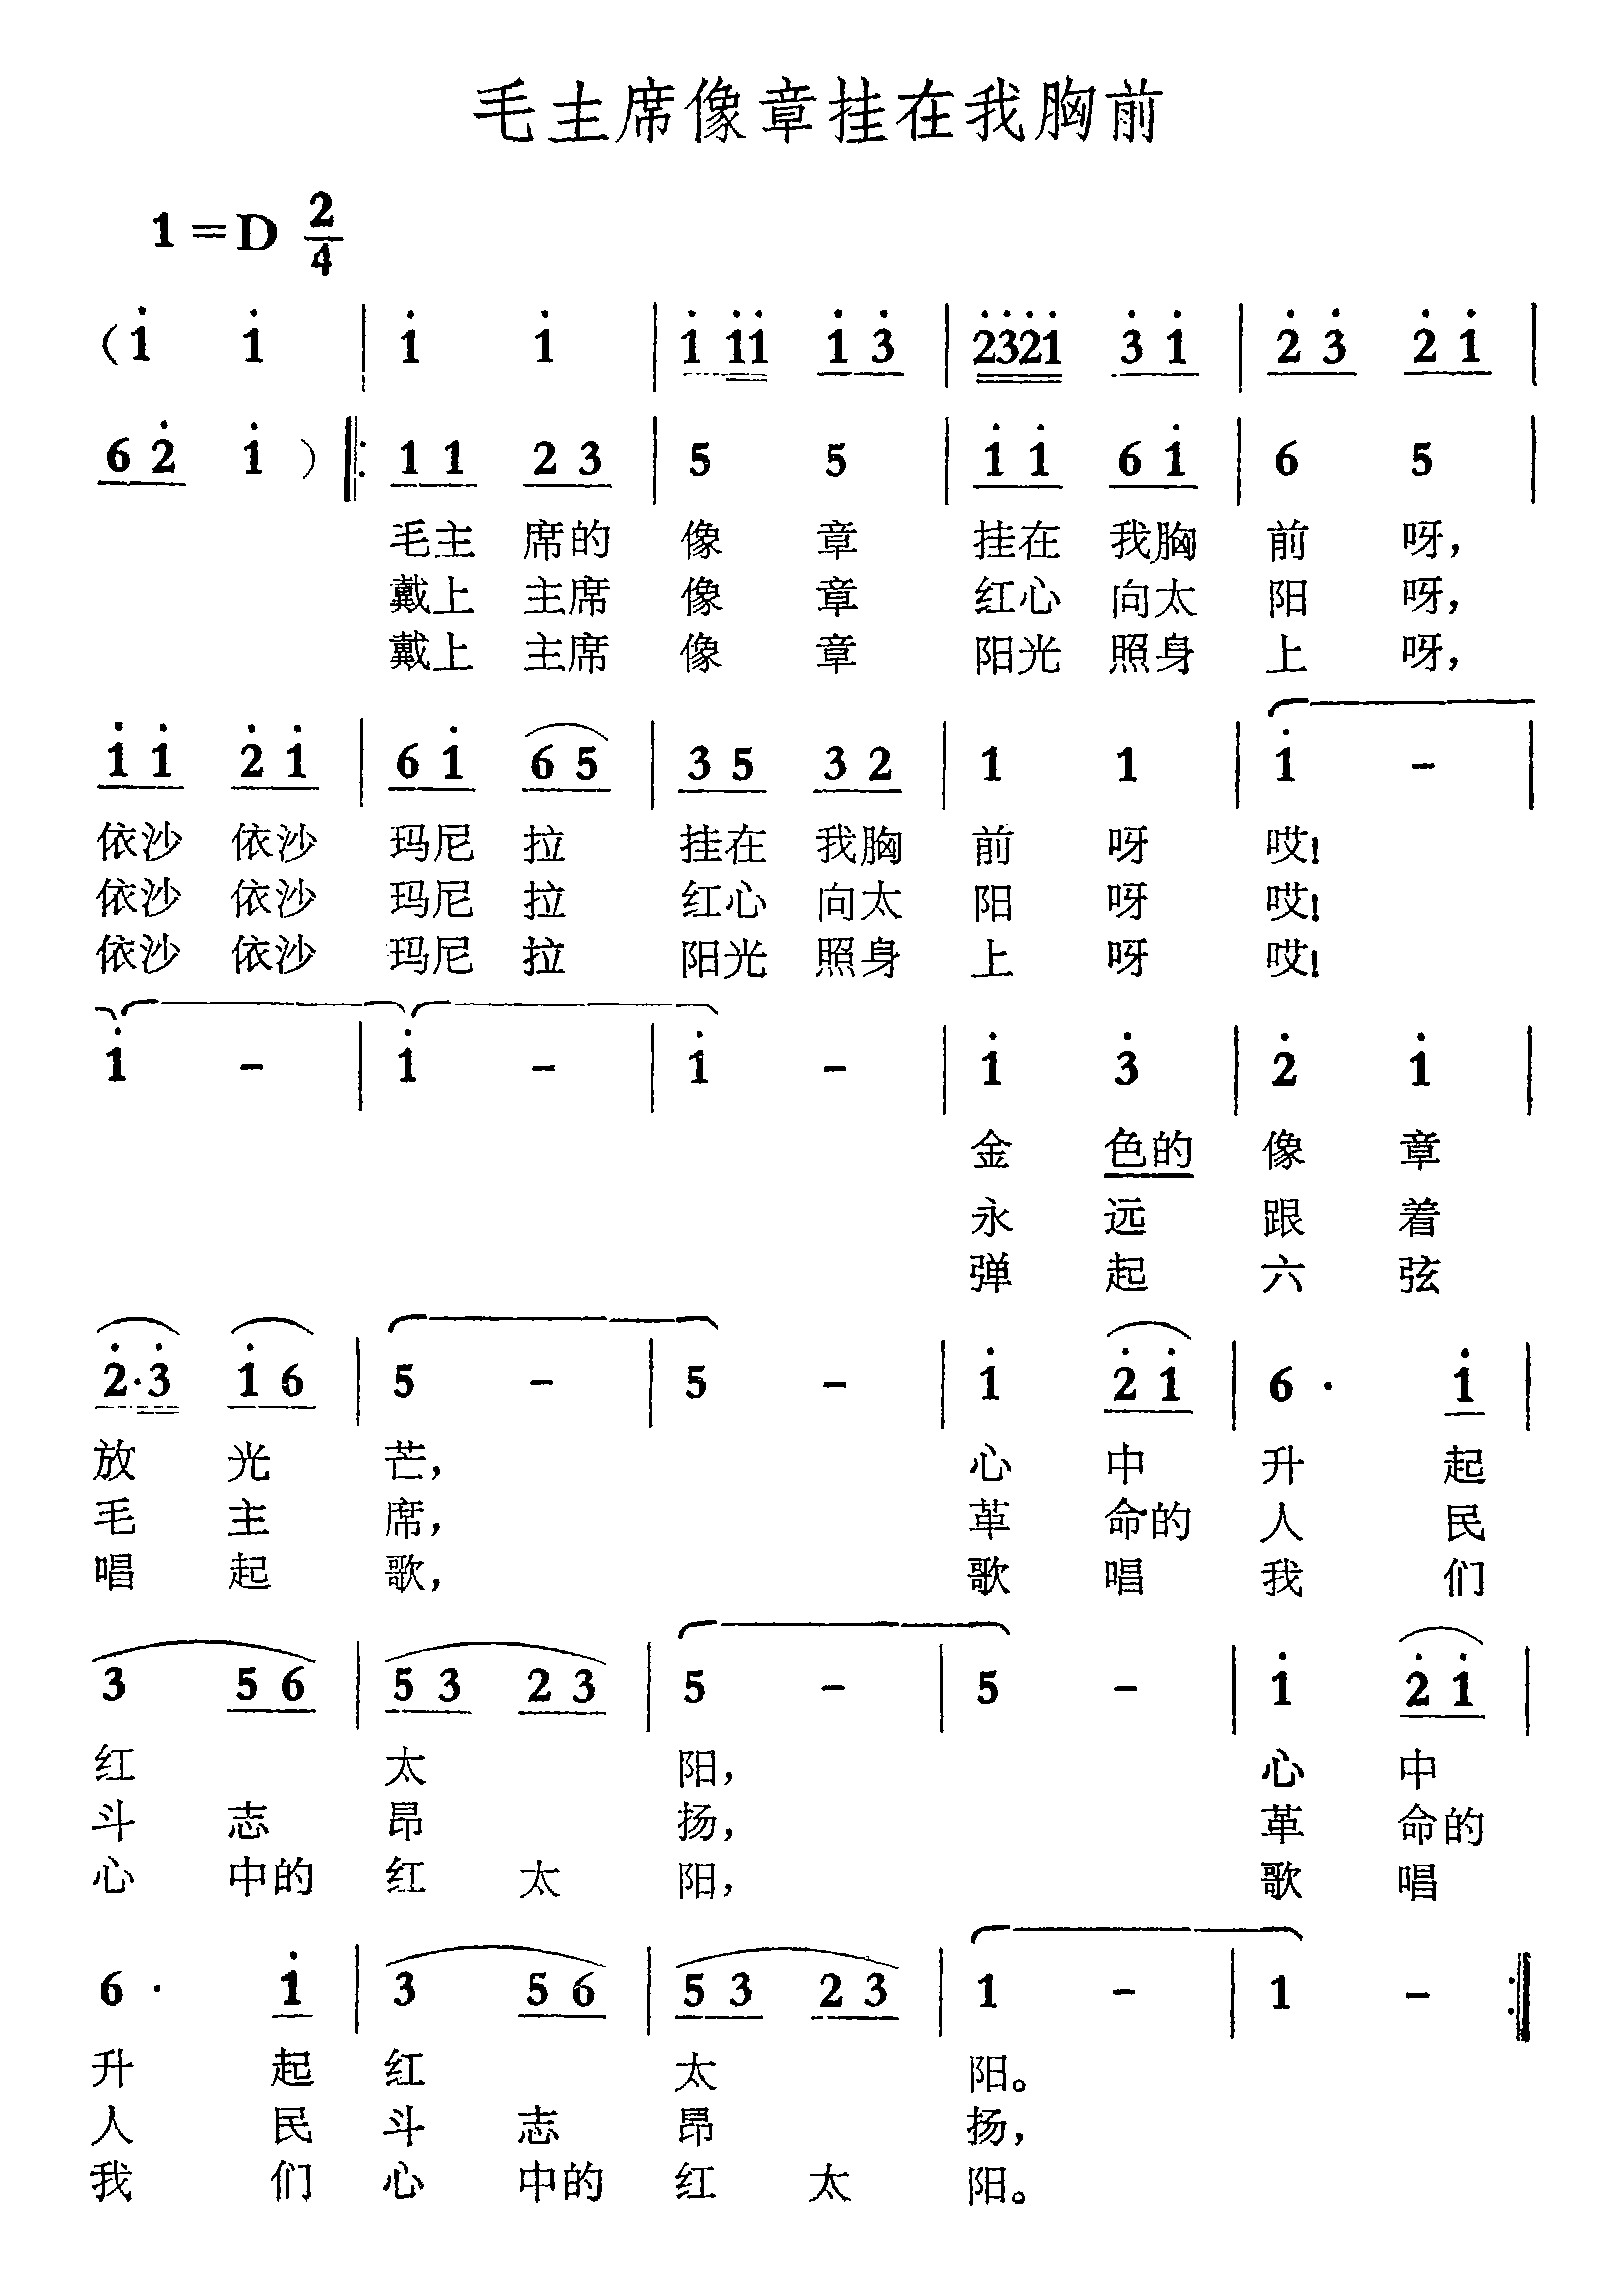 毛主席像章挂在我胸前
1=D 2/4
(i̇ i̇ | i̇ i̇ | i̇ i̇i̇ i̇ 3̇ | 2̇3̇2̇i̇ 3̇ i̇ | 2̇ 3̇ 2̇ i̇ |
6 2̇ i̇ ) |: 1 1 2 3 | 5 5 | i̇ i̇ 6 i̇ | 6 5 |
毛主 席的 像 章 挂在 我胸 前 呀,
戴上 主席 像 章 红心 向太 阳 呀,
戴上 主席 像 章 阳光 照身 上 呀,
i̇ i̇ 2̇ i̇ | 6 i̇ 6 5 | 3 5 3 2 | 1 1 | i̇ - |
依沙 依沙 玛尼 拉 挂在 我胸 前 呀 哎!
依沙 依沙 玛尼 拉 红心 向太 阳 呀 哎!
依沙 依沙 玛尼 拉 阳光 照身 上 呀 哎!
i̇ - | i̇ - | i̇ - | i̇ 3̇ | 2̇ i̇ |
金 色的 像 章
永 远 跟 着
弹 起 六 弦
2̇·3̇ i̇ 6 | 5 - | 5 - | i̇ 2̇ i̇ | 6 · i̇ |
放 光 芒, 心 中 升 起
毛 主 席, 革 命的 人 民
唱 起 歌, 歌 唱 我 们
3 5 6 | 5 3 2 3 | 5 - | 5 - | i̇ 2̇ i̇ |
红 太 阳, 心 中
斗 志 昂 扬, 革 命的
心 中的 红 太 阳, 歌 唱
6 · i̇ | 3 5 6 | 5 3 2 3 | 1 - | 1 - :|
升 起 红 太 阳。
人 民 斗 志 昂 扬,
我 们 心 中的 红 太 阳。